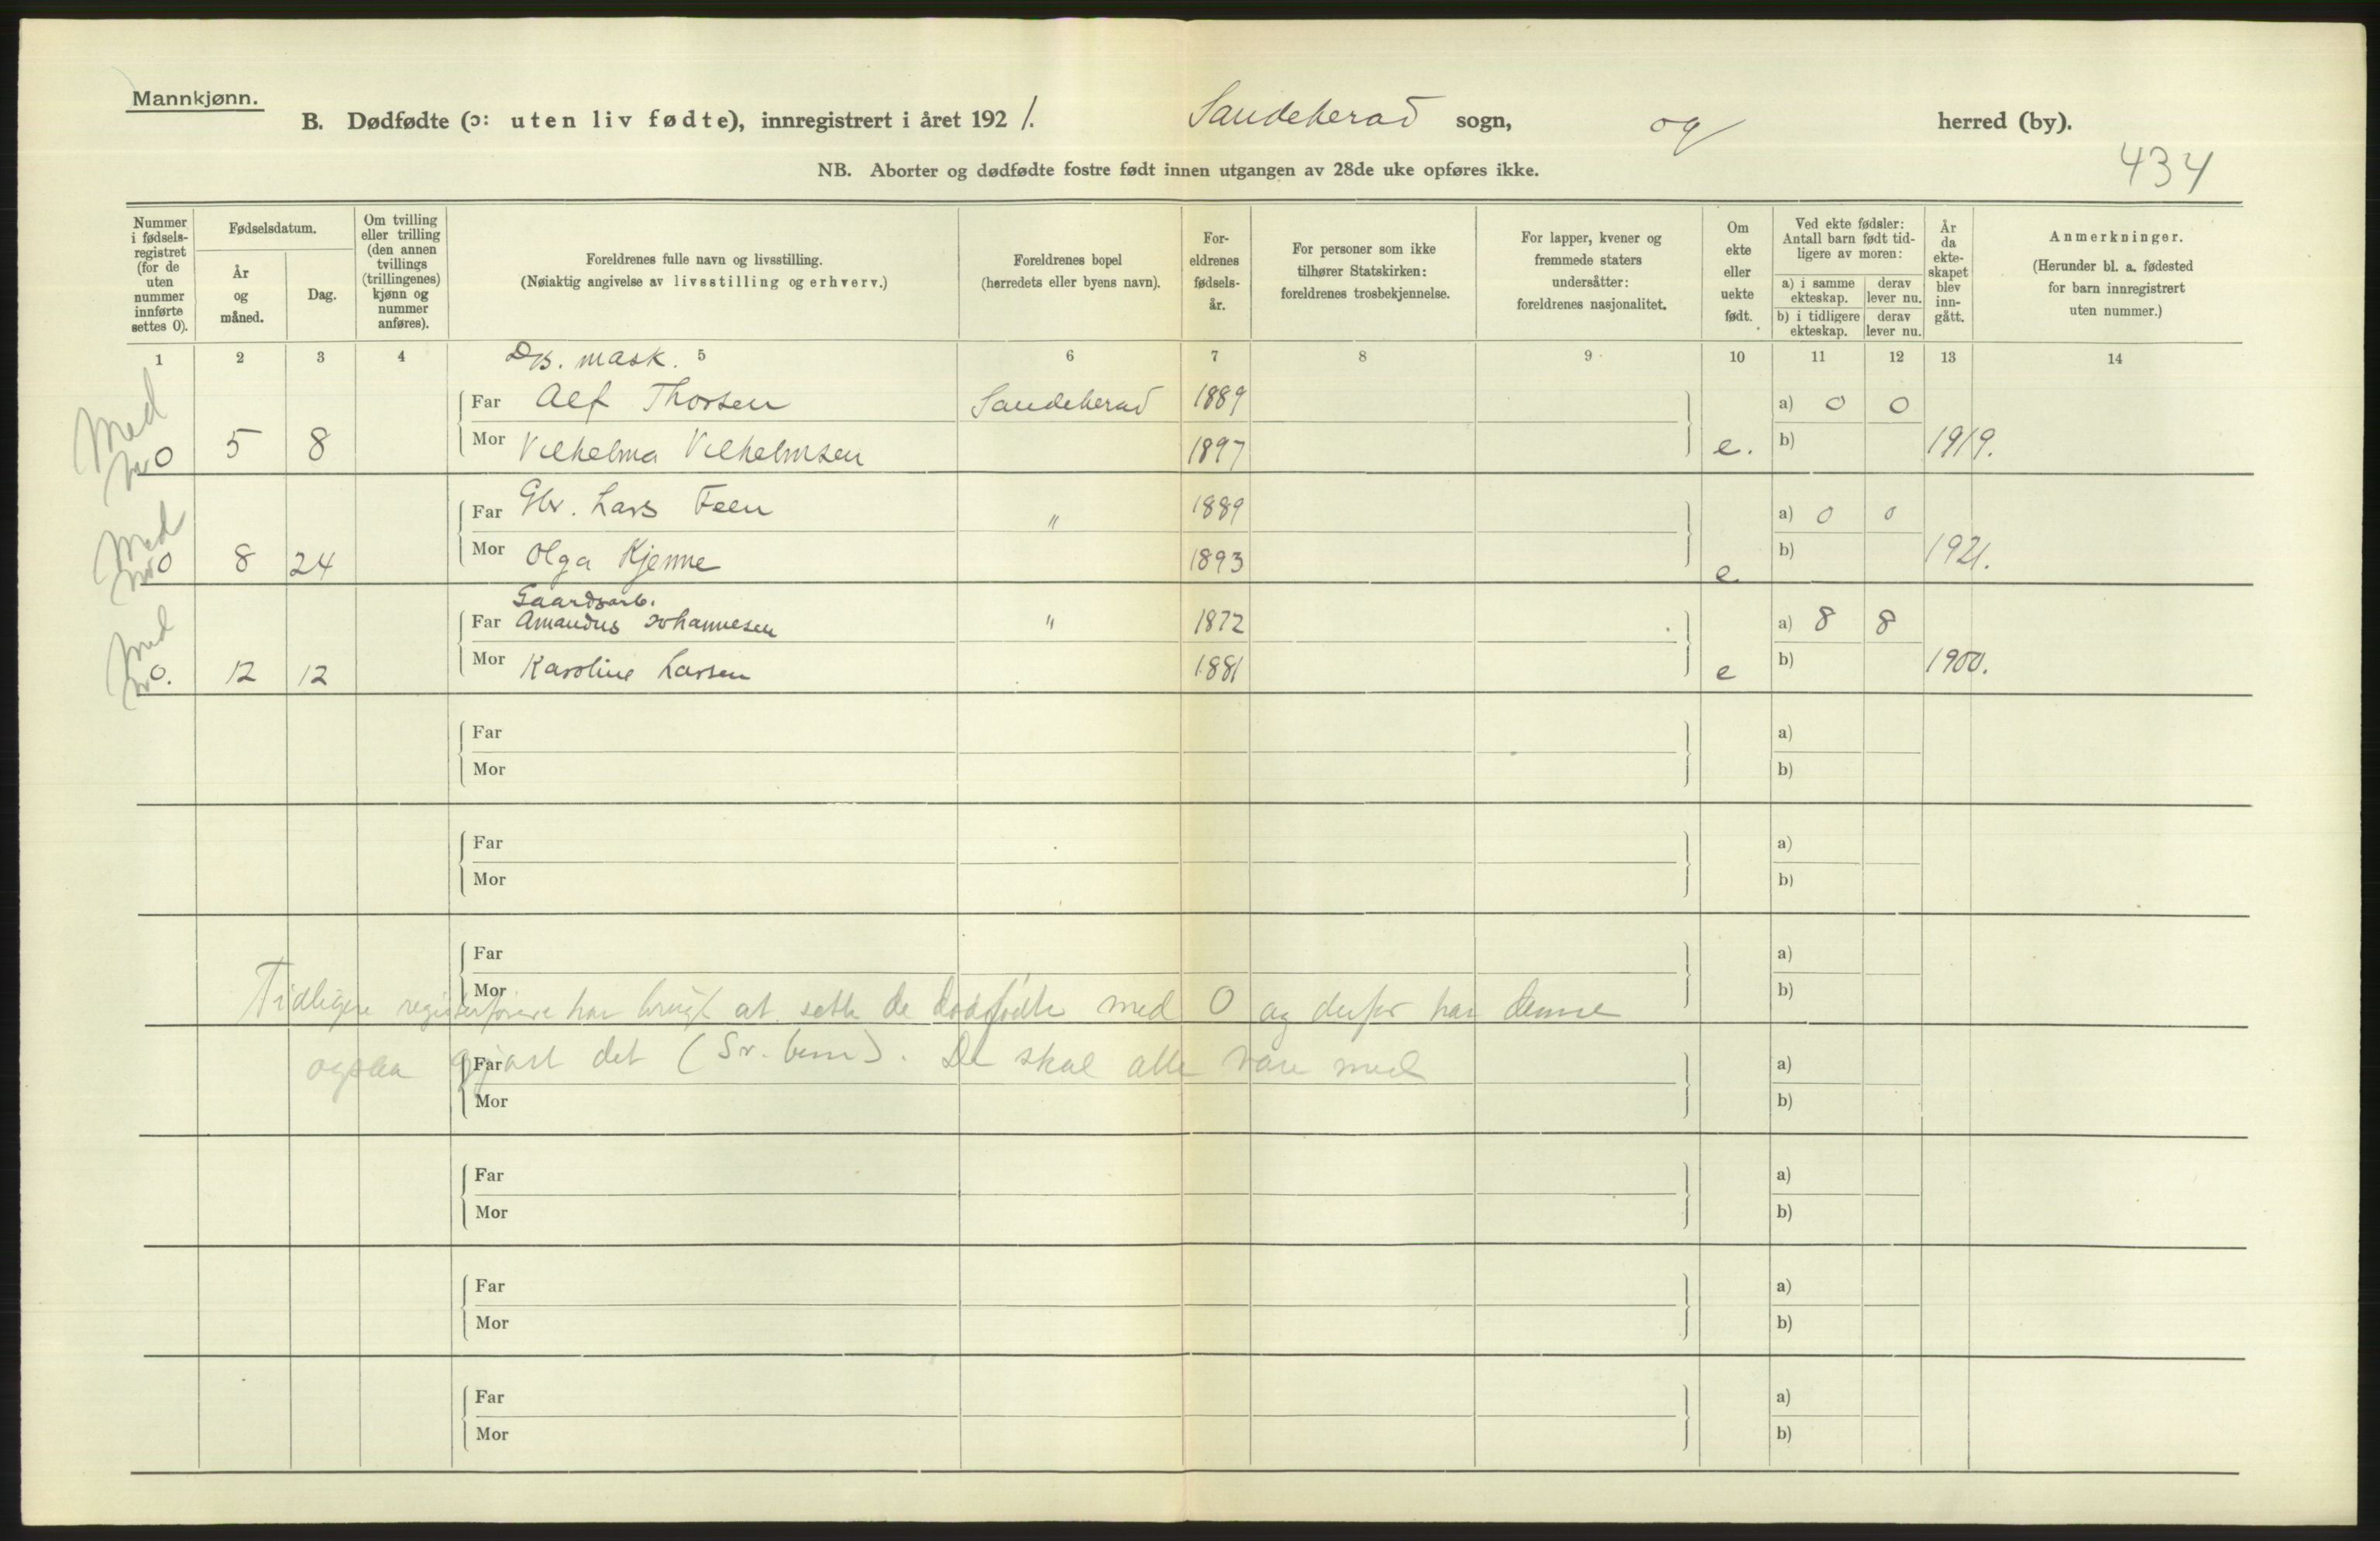 Mannkjønn.
B. Dødfødte (ɔ: uten liv fødte), innregistrert i året 1921. Sandeherad sogn, og herred (by).
434
NB. Aborter og dødfødte fostre født innen utgangen av 28de uke opføres ikke.
Nummer i fødsels-registret (for de uten nummer innførte settes 0).
Fødselsdatum.
År og måned.
Dag.
Om tvilling eller trilling (den annen tvillings (trillingenes) kjønn og nummer anføres).
Foreldrenes fulle navn og livsstilling.
(Nøiaktig angivelse av livsstilling og erhverv.)
Foreldrenes bopel
(herredets eller byens navn).
For-eldrenes fødsels-år.
For personer som ikke tilhører Statskirken: foreldrenes trosbekjennelse.
For lapper, kvener og fremmede staters undersåtter: foreldrenes nasjonalitet.
Om ekte eller uekte født.
Ved ekte fødsler: Antall barn født tid-ligere av moren:
a) i samme ekteskap.
derav lever nu.
b) i tidligere ekteskap.
derav lever nu.
År da ekte-skapet blev inn-gått.
Anmerkninger.
(Herunder bl. a. fødested for barn innregistrert uten nummer.)
1 2 3 4 5 6 7 8 9 10 11 12 13 14
mask.
Med
Far Alf Thorsen Sandeherad 1889 a) 0 0
0 5 8 Mor Vilhelma Vilhelmsen 1897 e. b) 1919.
Med
Far Gbr. Lars Feen " 1889 a) 0 0
0 8 24 Mor Olga Kjenne 1893 e b) 1921.
Med
Gaardsarb.
Far Amandus Johannesen " 1872 a) 8 8
0. 12 12 Mor Karoline Larsen 1881 e b) 1900.
Far a)
Mor b)
Far a)
Mor b)
Far a)
Mor b)
Tidligere registerførere har brugt at sette de dødfødte med 0 og derfor har denne
ogsaa gjort det (Sv. bem). De skal alle være med
Far a)
Mor b)
Far a)
Mor b)
Far a)
Mor b)
Far a)
Mor b)